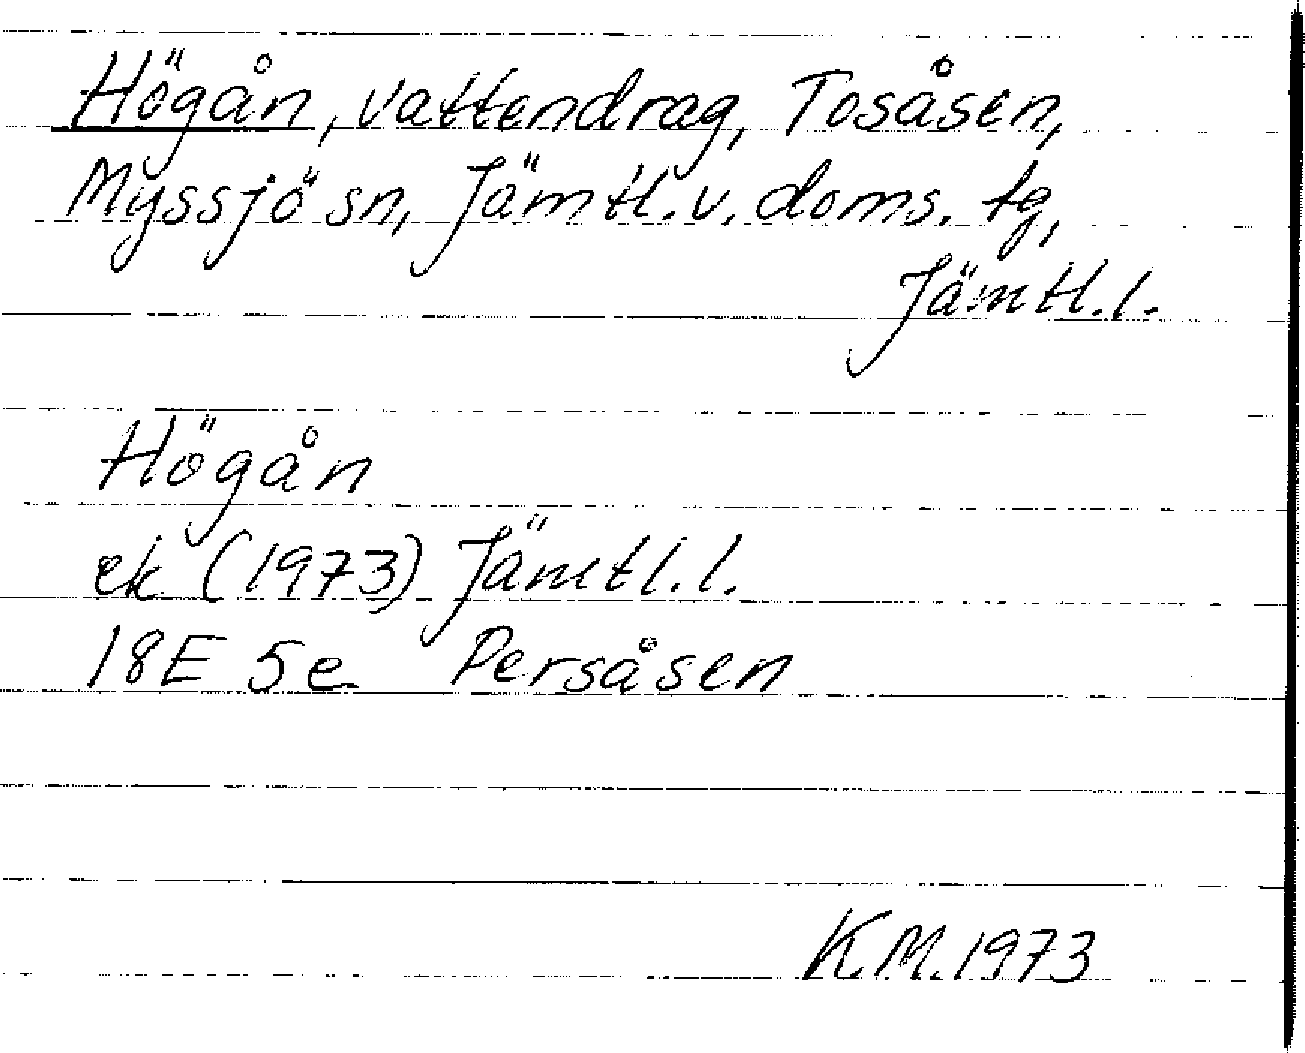 Högån, vattendrag, Tosåsen,
Myssjö sn, Jämtl. v. doms. tg,
Jämtl. l.
Högån
ek (1973) Jämtl. l.
18E 5e Persåsen
K.M. 1973